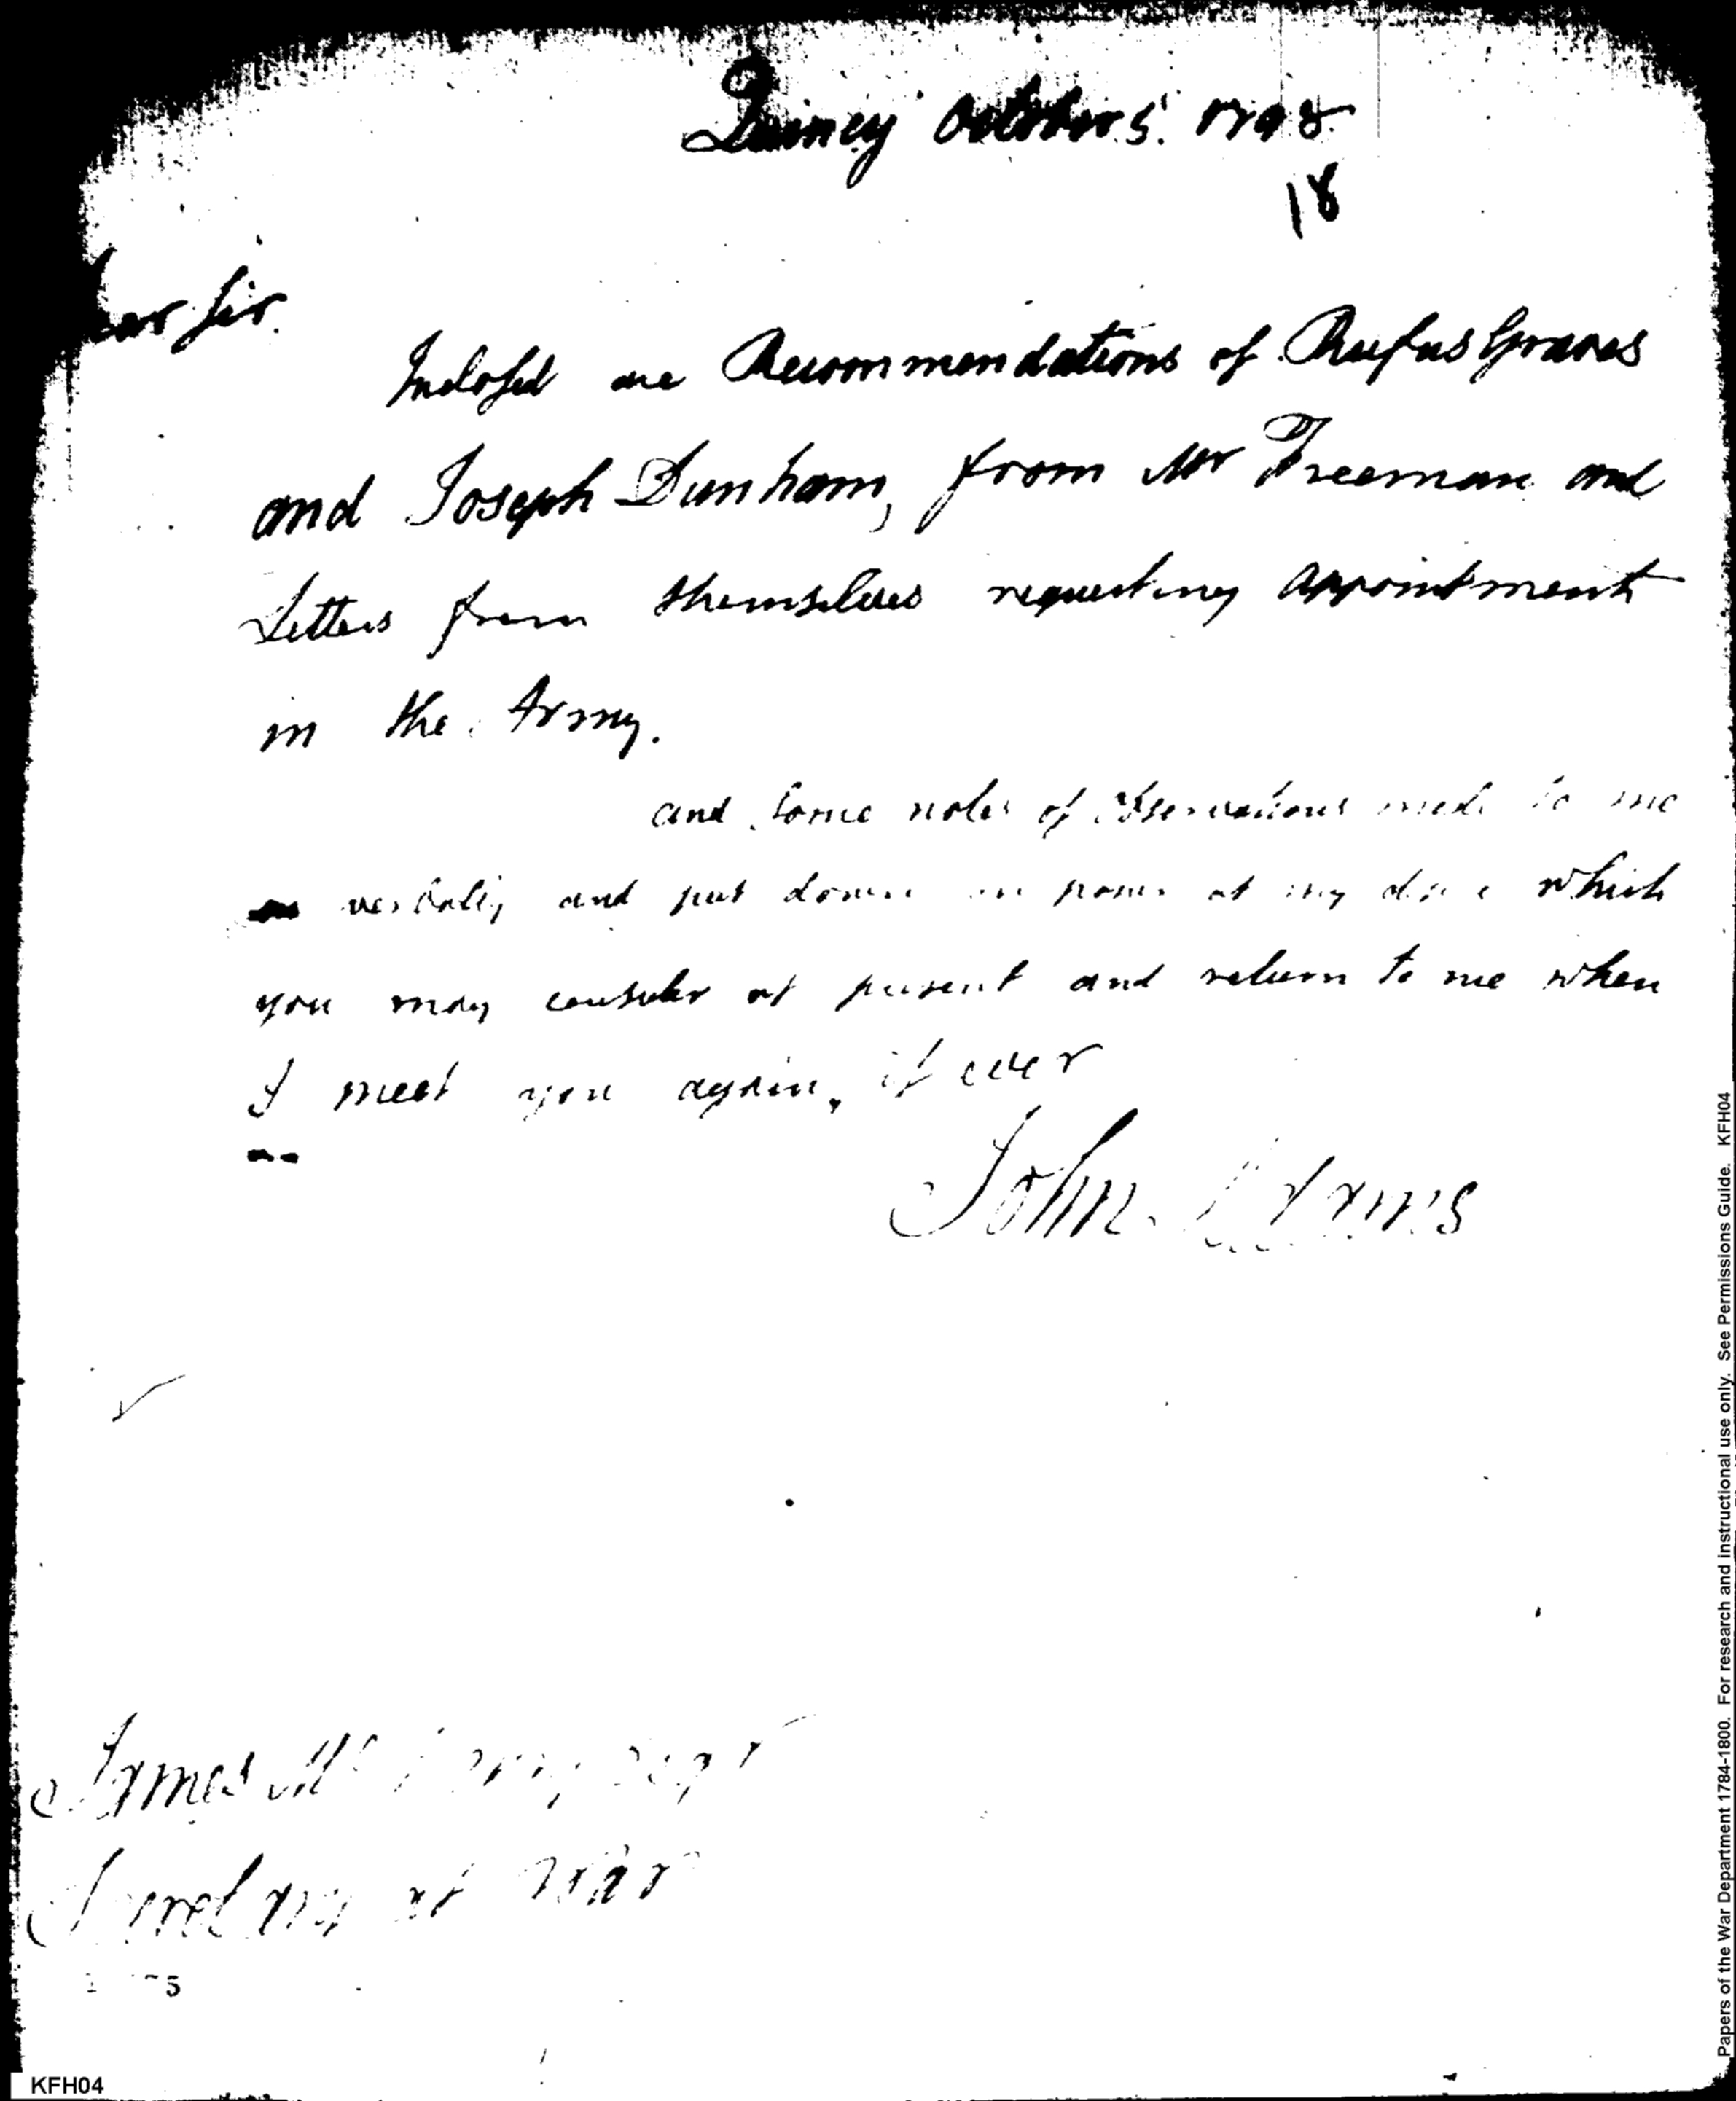 Quincy October 5. 1798
18
Dear Sir.
Inclosed are Recommendations of Rufus Graves
and Joseph Dunham, from Mr Freeman and
Letters from themselves requesting appointment
in the Army.
and some notes of observations made to me
verbally and put down in at my which
you may consider at present and return to me when
I meet you again, if ever
John Adams
James McHenry Esqr
Secretary at War
KFH04
Papers of the War Department 1784-1800. For research and instructional use only. See Permissions Guide. KFH04